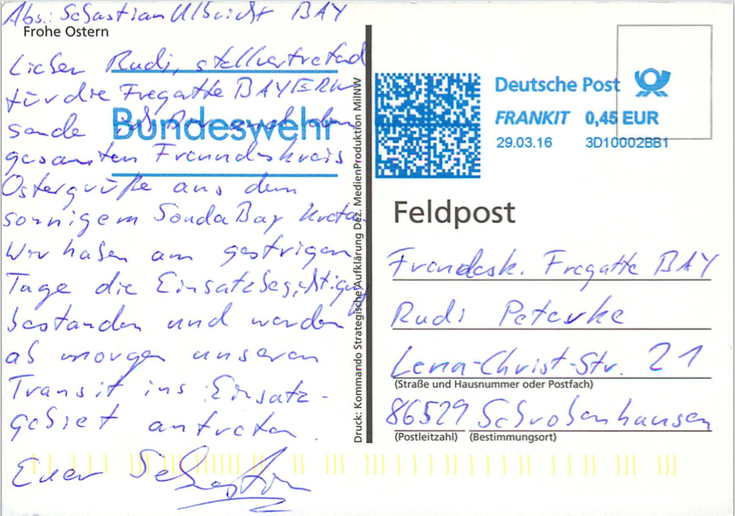 Abs.: Sebastian Ulbricht BAY
Frohe Ostern
Lieber Rudi, stellvertretend
für die Fregatte BAYERN
sende
gesamten Freundeskreis
Ostergrüße aus dem
sonnigem Souda Bay Kreta.
Wir haben am gestrigen
Tage die Einsatzbesichtigung
bestanden und werden
ab morgen unseren
Transit ins Einsatz-
gebiet antreten.
Euer Sebastian
Bundeswehr
Druck: Kommando Strategische Aufklärung Dez. MedienProduktion MilNW
Deutsche Post
FRANKIT 0,45 EUR
29.03.16 3D10002BB1
Feldpost
Freundesk. Fregatte BAY
Rudi Peterke
Lena-Christ-Str. 21
(Straße und Hausnummer oder Postfach)
86529 Schrobenhausen
(Postleitzahl) (Bestimmungsort)